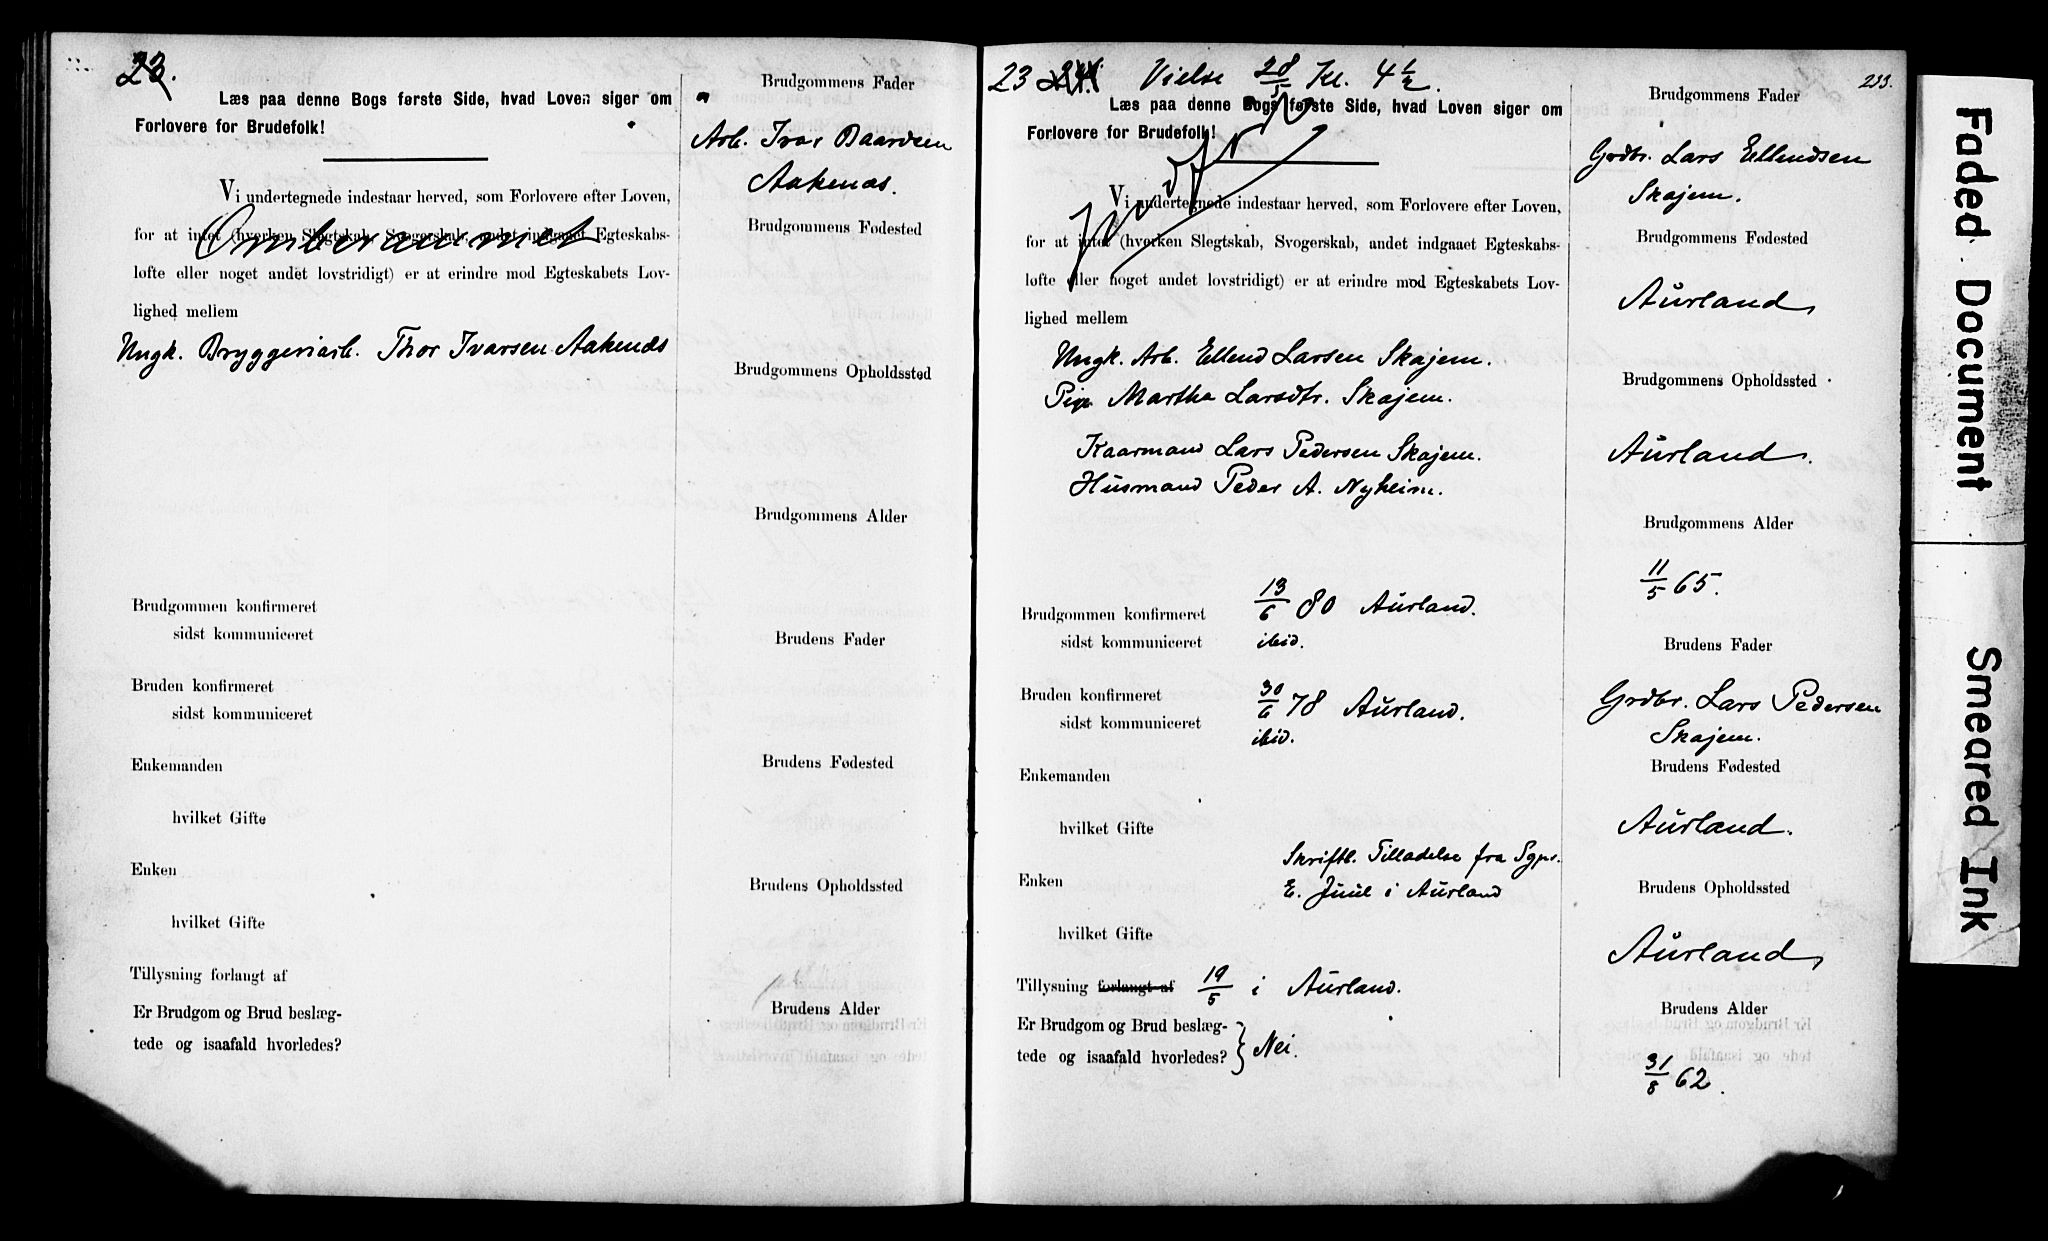 23.
Læs paa denne Bogs første Side, hvad Loven siger om
Forlovere for Brudefolk!
Vi undertegnede indestaar herved, som Forlovere efter Loven,
for at intet (hverken Slegtskab, Svogerskab, andet indgaaet Egteskabs-
Omberammet
løfte eller noget andet lovstridigt) er at erindre mod Egteskabets Lov-
lighed mellem
Ungk. Bryggeriarb. Thor Ivarsen Aakenæs
Brudgommen konfirmeret
sidst kommuniceret
Bruden konfirmeret
sidst kommuniceret
Enkemanden
hvilket Gifte
Enken
hvilket Gifte
Tillysning forlangt af
Er Brudgom og Brud beslæg-
tede og isaafald hvorledes?
Brudgommens Fader
Arb. Ivar Baardsen
Aakenæs.
Brudgommens Fødested
Brudgommens Opholdssted
Brudgommens Alder
Brudens Fader
Brudens Fødested
Brudens Opholdssted
Brudens Alder
23 24. Vielse 28/5 Kl. 4 1/2.
Læs paa denne Bogs første Side, hvad Loven siger om
Forlovere for Brudefolk!
Vi undertegnede indestaar herved, som Forlovere efter Loven,
for at intet (hverken Slegtskab, Svogerskab, andet indgaaet Egteskabs-
løfte eller noget andet lovstridigt) er at erindre mod Egteskabets Lov-
lighed mellem
Ungk. Arb. Ellend Larsen Skajem.
Pige Martha Larsdtr. Skajem.
Kaarmand Lars Pedersen Skajem.
Husmand Peder A. Nyheim.
Brudgommen konfirmeret 13/6 80 Aurland.
sidst kommuniceret ibid.
Bruden konfirmeret 30/6 78 Aurland.
sidst kommuniceret ibid.
Enkemanden
hvilket Gifte
Skriftl. Tilladelse fra Sgpr.
Enken E. Juul i Aurland
hvilket Gifte
Tillysning forlangt af 19/5 i Aurland.
Er Brudgom og Brud beslæg-
tede og isaafald hvorledes? } Nei.
233.
Brudgommens Fader
Grdbr. Lars Ellendsen
Skajem.
Brudgommens Fødested
Aurland
Brudgommens Opholdssted
Aurland.
Brudgommens Alder
11/5 65.
Brudens Fader
Grdbr. Lars Pedersen
Skajem.
Brudens Fødested
Aurland.
Brudens Opholdssted
Aurland
Brudens Alder
31/8 62.
Faded Document
Smeared Ink